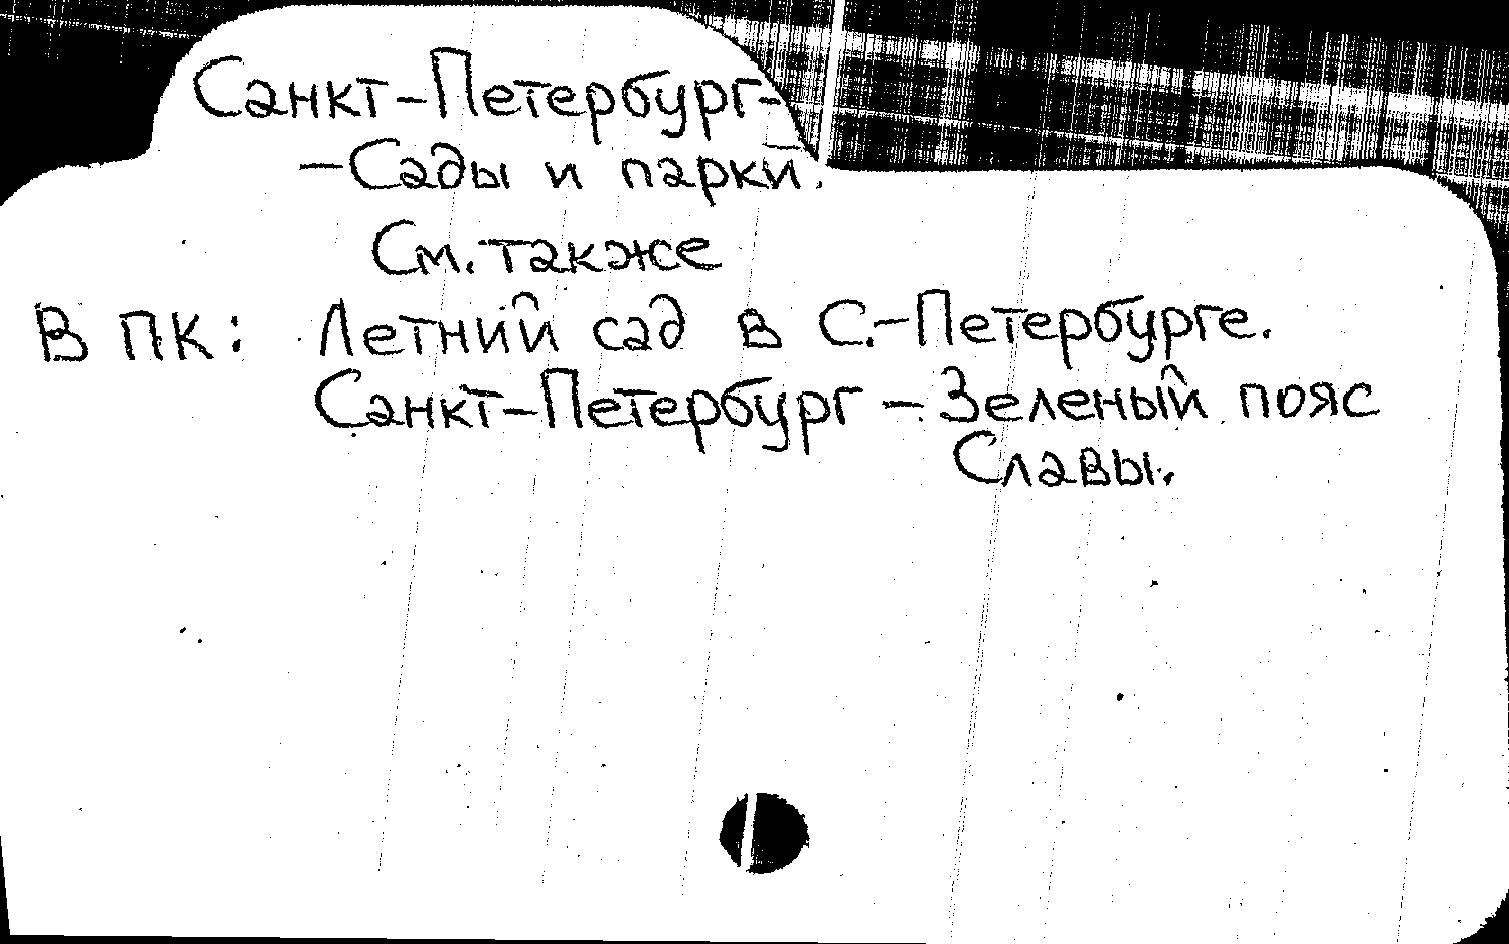 Санкт-Петербург-
-Сады и парки.
См. также
В ПК: Летний сад в С.-Петербурге.
Санкт-Петербург - Зеленый пояс
Славы.